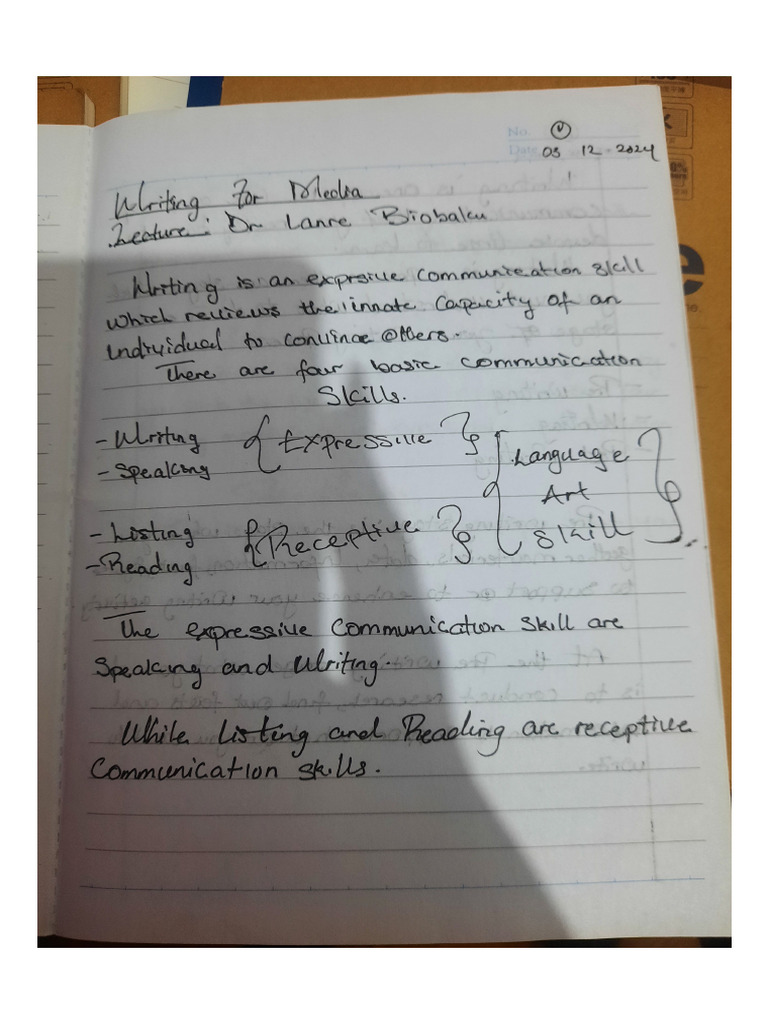 No.
Date 03 12 - 2024
Writing For Media
Lecture: Dr Lanre Biobaku
Writing is an exprsive communication skill
which reviews the innate capacity of an
individual to convince others.
There are four basic communication
Skills.
- Writing
- Speaking
{ Expressive }
- Listing
- Reading
{ Receptive }
{ Language
Art
Skill }
The expressive communication skill are
Speaking and Writing.
While listing and Reading are receptive
Communication skills.